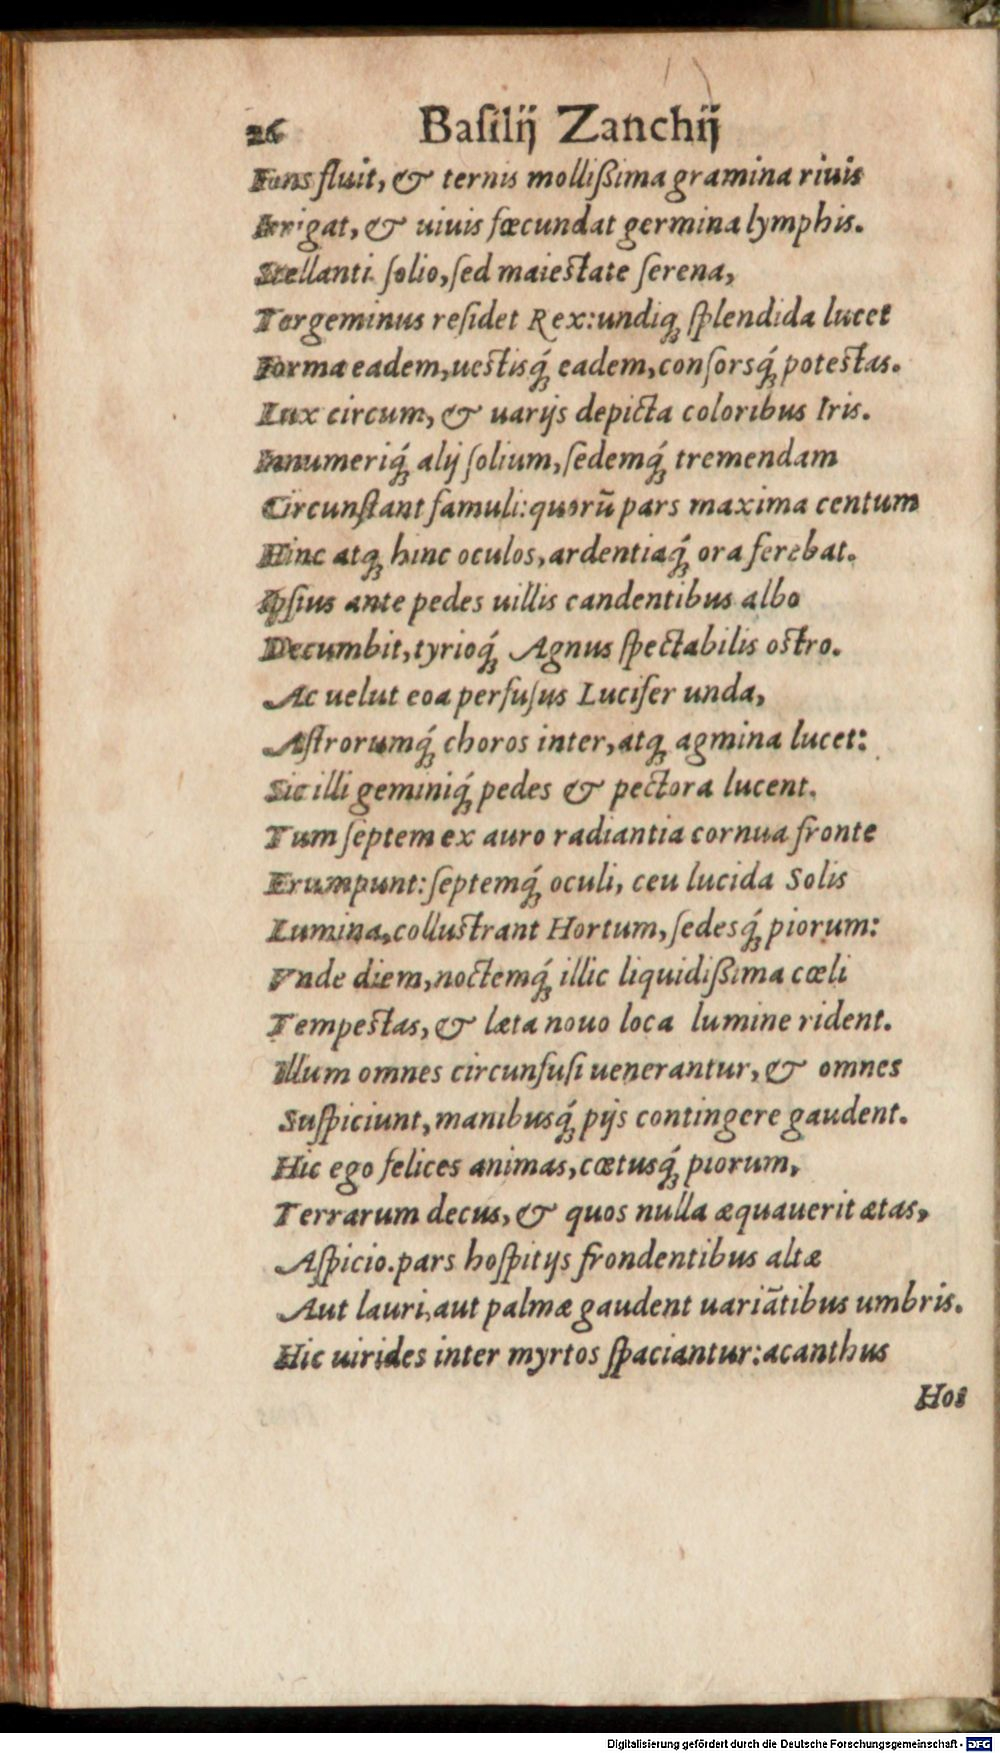 26 Baſilij Zanchij
Fons fluit, & ternis mollißima gramina riuis
Irrigat, & uiuis fœcundat germina lymphis.
Stellanti ſolio, ſed maieſtate ſerena,
Tergeminus reſidet Rex: undiq; ſplendida lucet
Forma eadem, ueſtisq́; eadem, conſorsq́; poteſtas.
Lux circum, & uarijs depicta coloribus Iris.
Innumeriq́; alij ſolium, ſedemq́; tremendam
Circunſtant famuli: quorū pars maxima centum
Hinc atq; hinc oculos, ardentiaq́; ora ferebat.
Ipſius ante pedes uillis candentibus albo
Decumbit, tyrioq́; Agnus ſpectabilis oſtro.
Ac uelut eoa perfuſus Lucifer unda,
Aſtrorumq́; choros inter, atq; agmina lucet:
Sic illi geminiq́; pedes & pectora lucent.
Tum ſeptem ex auro radiantia cornua fronte
Erumpunt: ſeptemq́; oculi, ceu lucida Solis
Lumina, colluſtrant Hortum, ſedesq́; piorum:
Vnde diem, noctemq́; illic liquidißima cœli
Tempeſtas, & læta nouo loca lumine rident.
Illum omnes circunfuſi uenerantur, & omnes
Suſpiciunt, manibusq́; pijs contingere gaudent.
Hic ego felices animas, cœtusq́; piorum,
Terrarum decus, & quos nulla æquauerit ætas,
Aſpicio. pars hoſpitijs frondentibus altæ
Aut lauri, aut palmæ gaudent uariātibus umbris.
Hic uirides inter myrtos ſpaciantur: acanthus
Hos
Digitalisierung gefördert durch die Deutsche Forschungsgemeinschaft - DFG